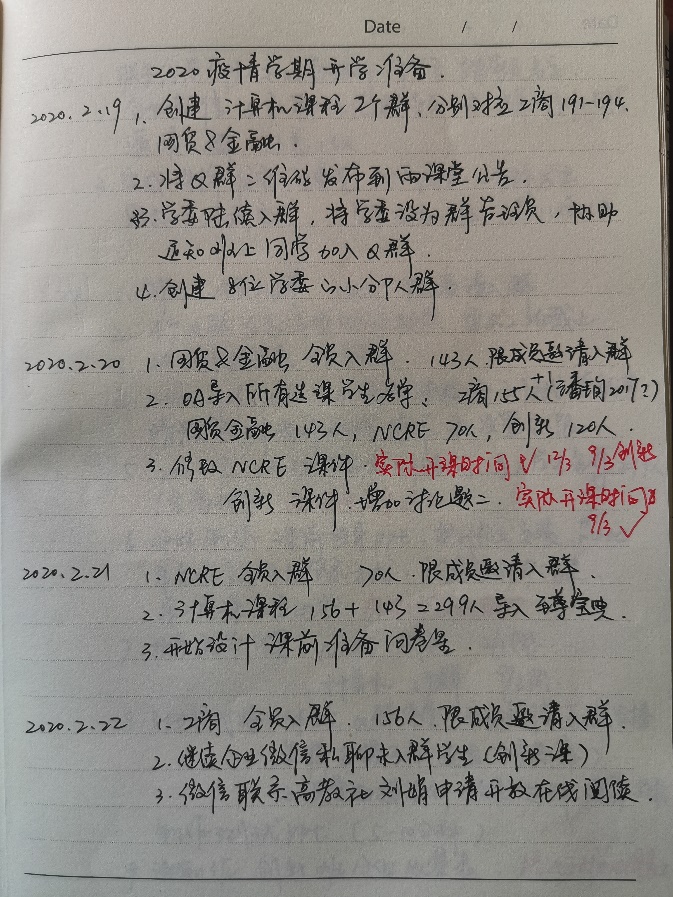 Date / /
2020疫情学期开学准备.
2020.2.19 1. 创建 计算机课程2个群, 分别对应工商191-194,
国贸&金融.
2. 将Q群二维码发布到雨课堂公告.
3. 学委陆续入群, 将学委设为群管理员, 协助
通知班上同学加入Q群.
4. 创建8位学委的小分队群.
2020.2.20 1. 国贸&金融 全员入群. 143人. 限成员邀请入群
2. OA导入所有选课学生名单: 工商155人+1(潘2017?)
国贸金融 143人, NCRE 70人, 创新 120人.
3. 修改 NCRE 课件. 实际开课时间 12/3 9/3 创新
创新 课件. 增加讨论题二. 实际开课时间
9/3 ✓
2020.2.21 1. NCRE 全员入群 70人. 限成员邀请入群.
2. 计算机课程 156+143=299人 导入至尊宝典.
3. 开始设计 课前准备问卷星.
2020.2.22 1. 工商 全员入群. 156人. 限成员邀请入群.
2. 继续企业微信私聊未入群学生(创新课)
3. 微信联系高教社刘娟申请开放在线阅读.